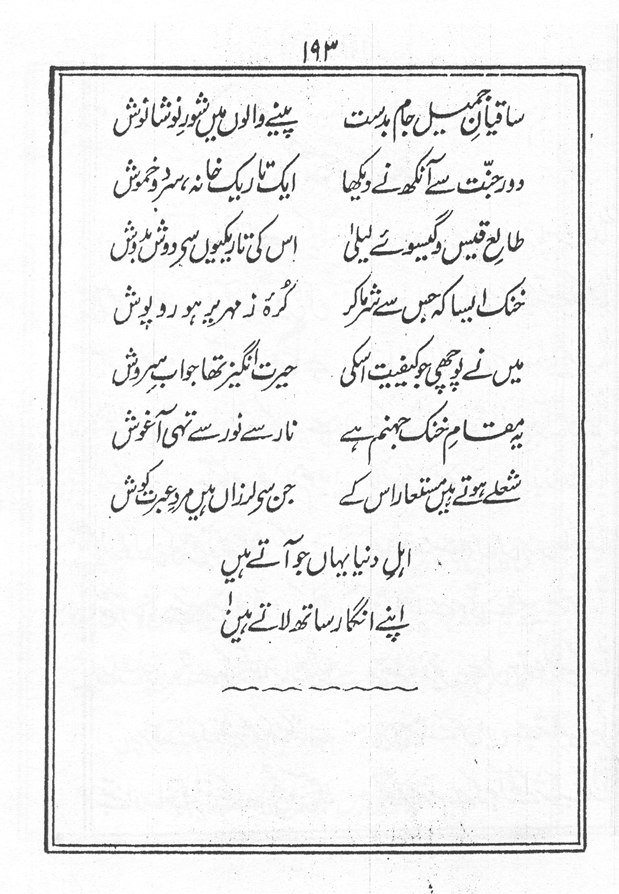 ۱۹۳
ساقیانِ جمیل جام بدست پینے والوں میں شورِ نوشانوش
دور جنّت سے آنکھ نے دیکھا ایک تاریک خانہ، سرد و خموش
طالعِ قیس و گیسوئے لیلیٰ اس کی تاریکیوں سی دوش بدوش
خنک ایسا کہ جس سے شرما کر کُرۂ زمہریر ہو روپوش
میں نے پوچھی جو کیفیت اسکی حیرت انگیز تھا جوابِ سروش
یہ مقامِ خنک جہنم ہے نار سے نور سے تہی آغوش
شعلے ہوتے ہیں مستعار اس کے جن سی لرزاں ہیں مردِ عبرت کوش
اہلِ دنیا یہاں جو آتے ہیں
اپنے انگار ساتھ لاتے ہیں!